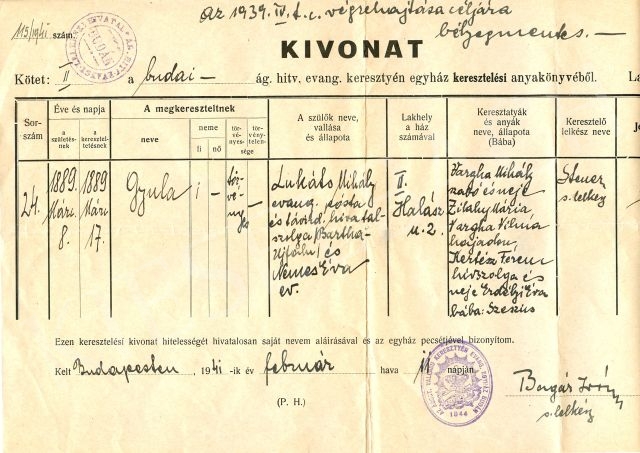 113/1941 szám.
Az 1939. IV. t. c. végrehajtása céljára
bélyegmentes. —
KIVONAT
Kötet: II a budai — ág. hitv. evang. keresztyén egyház keresztelési anyakönyvéből.
La
Sor-
szám
Éve és napja
a
születés-
nek
a
keresztel-
tetésnek
A megkereszteltnek
neve
neme
fi
nő
tör-
vényes-
tör-
vénytelen-
sége
A szülők neve,
vallása
és állapota
Lakhely
a ház
számával
Keresztatyák
és anyák
neve, állapota
(Bába)
Keresztelő
lelkész neve
24.
1889
Márc.
8.
1889
Márc.
17.
Gyula
1
—
tör-
vé-
nyes
—
Lukáts Mihály
evang. posta
és távird. hivatal-
szolga (Bartha-
újfalu) és
Nemes Éva
ev.
II.
Halász
u. 2.
Vargha Mihály
szabó és neje
Zilahy Mária,
Vargha Vilma
hajadon,
Kertész Ferenc
hiv. szolga és
neje Erdélyi Éva
bába:
s. lelkész
Ezen keresztelési kivonat hitelességét hivatalosan saját nevem aláirásával és az egyház pecsétjével bizonyítom.
Kelt Budapesten 1941-ik év február hava 11 napján
(P. H.)
s. lelkész
1844